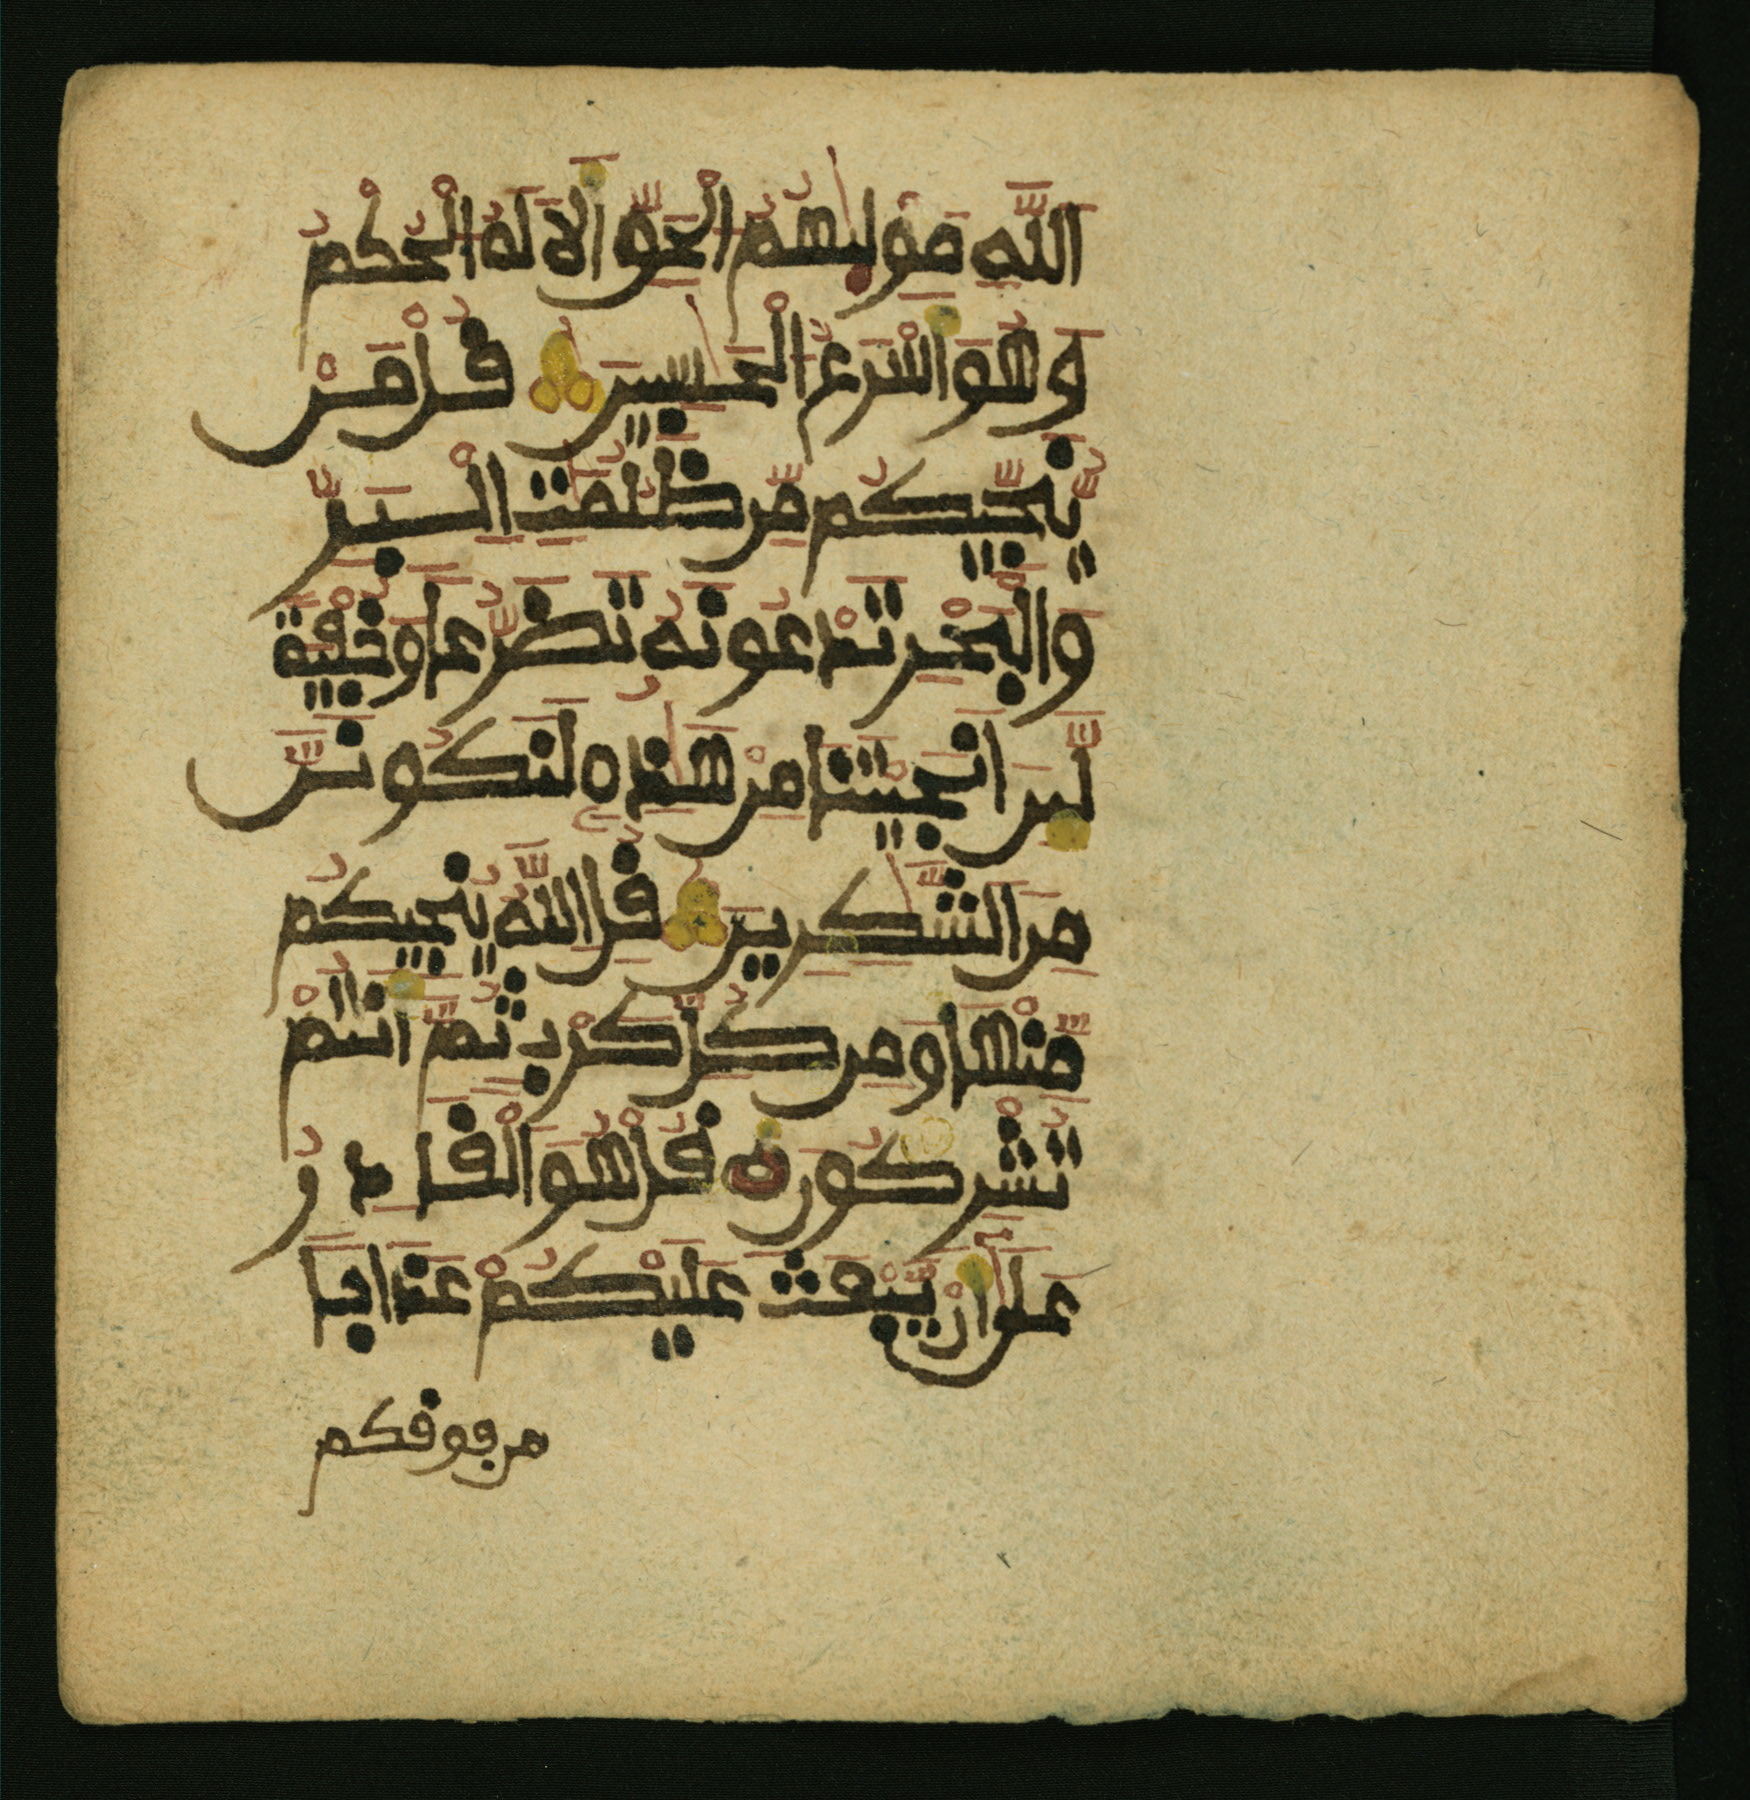 اللَّهِ مَوْلَىٰهُمُ الْحَقِّ أَلَا لَهُ الْحُكْمُ
وَهُوَ أَسْرَعُ الْحَٰسِبِينَ قُلْ مَنْ
يُّنَجِّيكُم مِّن ظُلُمَٰتِ الْبَرِّ
وَالْبَحْرِ تَدْعُونَهُ تَضَرُّعًا وَخُفْيَةً
لَّئِنْ أَنجَيْتَنَا مِنْ هَٰذِهِ لَنَكُونَنَّ
مِنَ الشَّٰكِرِينَ قُلِ اللَّهُ يُنجِيكُم
مِّنْهَا وَمِن كُلِّ كَرْبٍ ثُمَّ أَنتُمْ
تُشْرِكُونَ قُلْ هُوَ الْقَادِرُ
عَلَىٰ أَنْ يَّبْعَثَ عَلَيْكُمْ عَذَابًا
من فوقكم